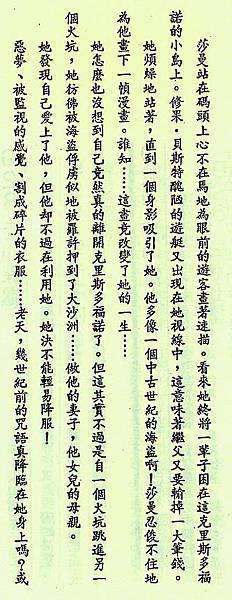 莎曼站在碼頭上心不在馬地為眼前的遊客畫著速描。看來她終將一輩子困在這克里斯多福
諾的小島上。修果·貝斯特醜陋的遊艇又出現在她視線中，這意味著繼父又要輸掉一大筆錢。
她煩燥地站著，直到一個身影吸引了她。他多像一個中古世紀的海盜啊！莎曼忍俊不住地
為他畫下一幀漫畫。誰知……這畫竟改變了她的一生……
她怎麼也沒想到自己竟然真的離開克里斯多福諾了。但這其實不過是自一個火坑跳進另一
個火坑，她彷彿被海盜俘虜似地被羅許押到了大沙洲……做他的妻子，他女兒的母親。
她發現自己愛上了他，但他卻不過在利用她。她決不能輕易降服！
惡夢、被監視的感覺、割成碎片的衣服……老天，幾世紀前的咒語真降臨在她身上嗎？或